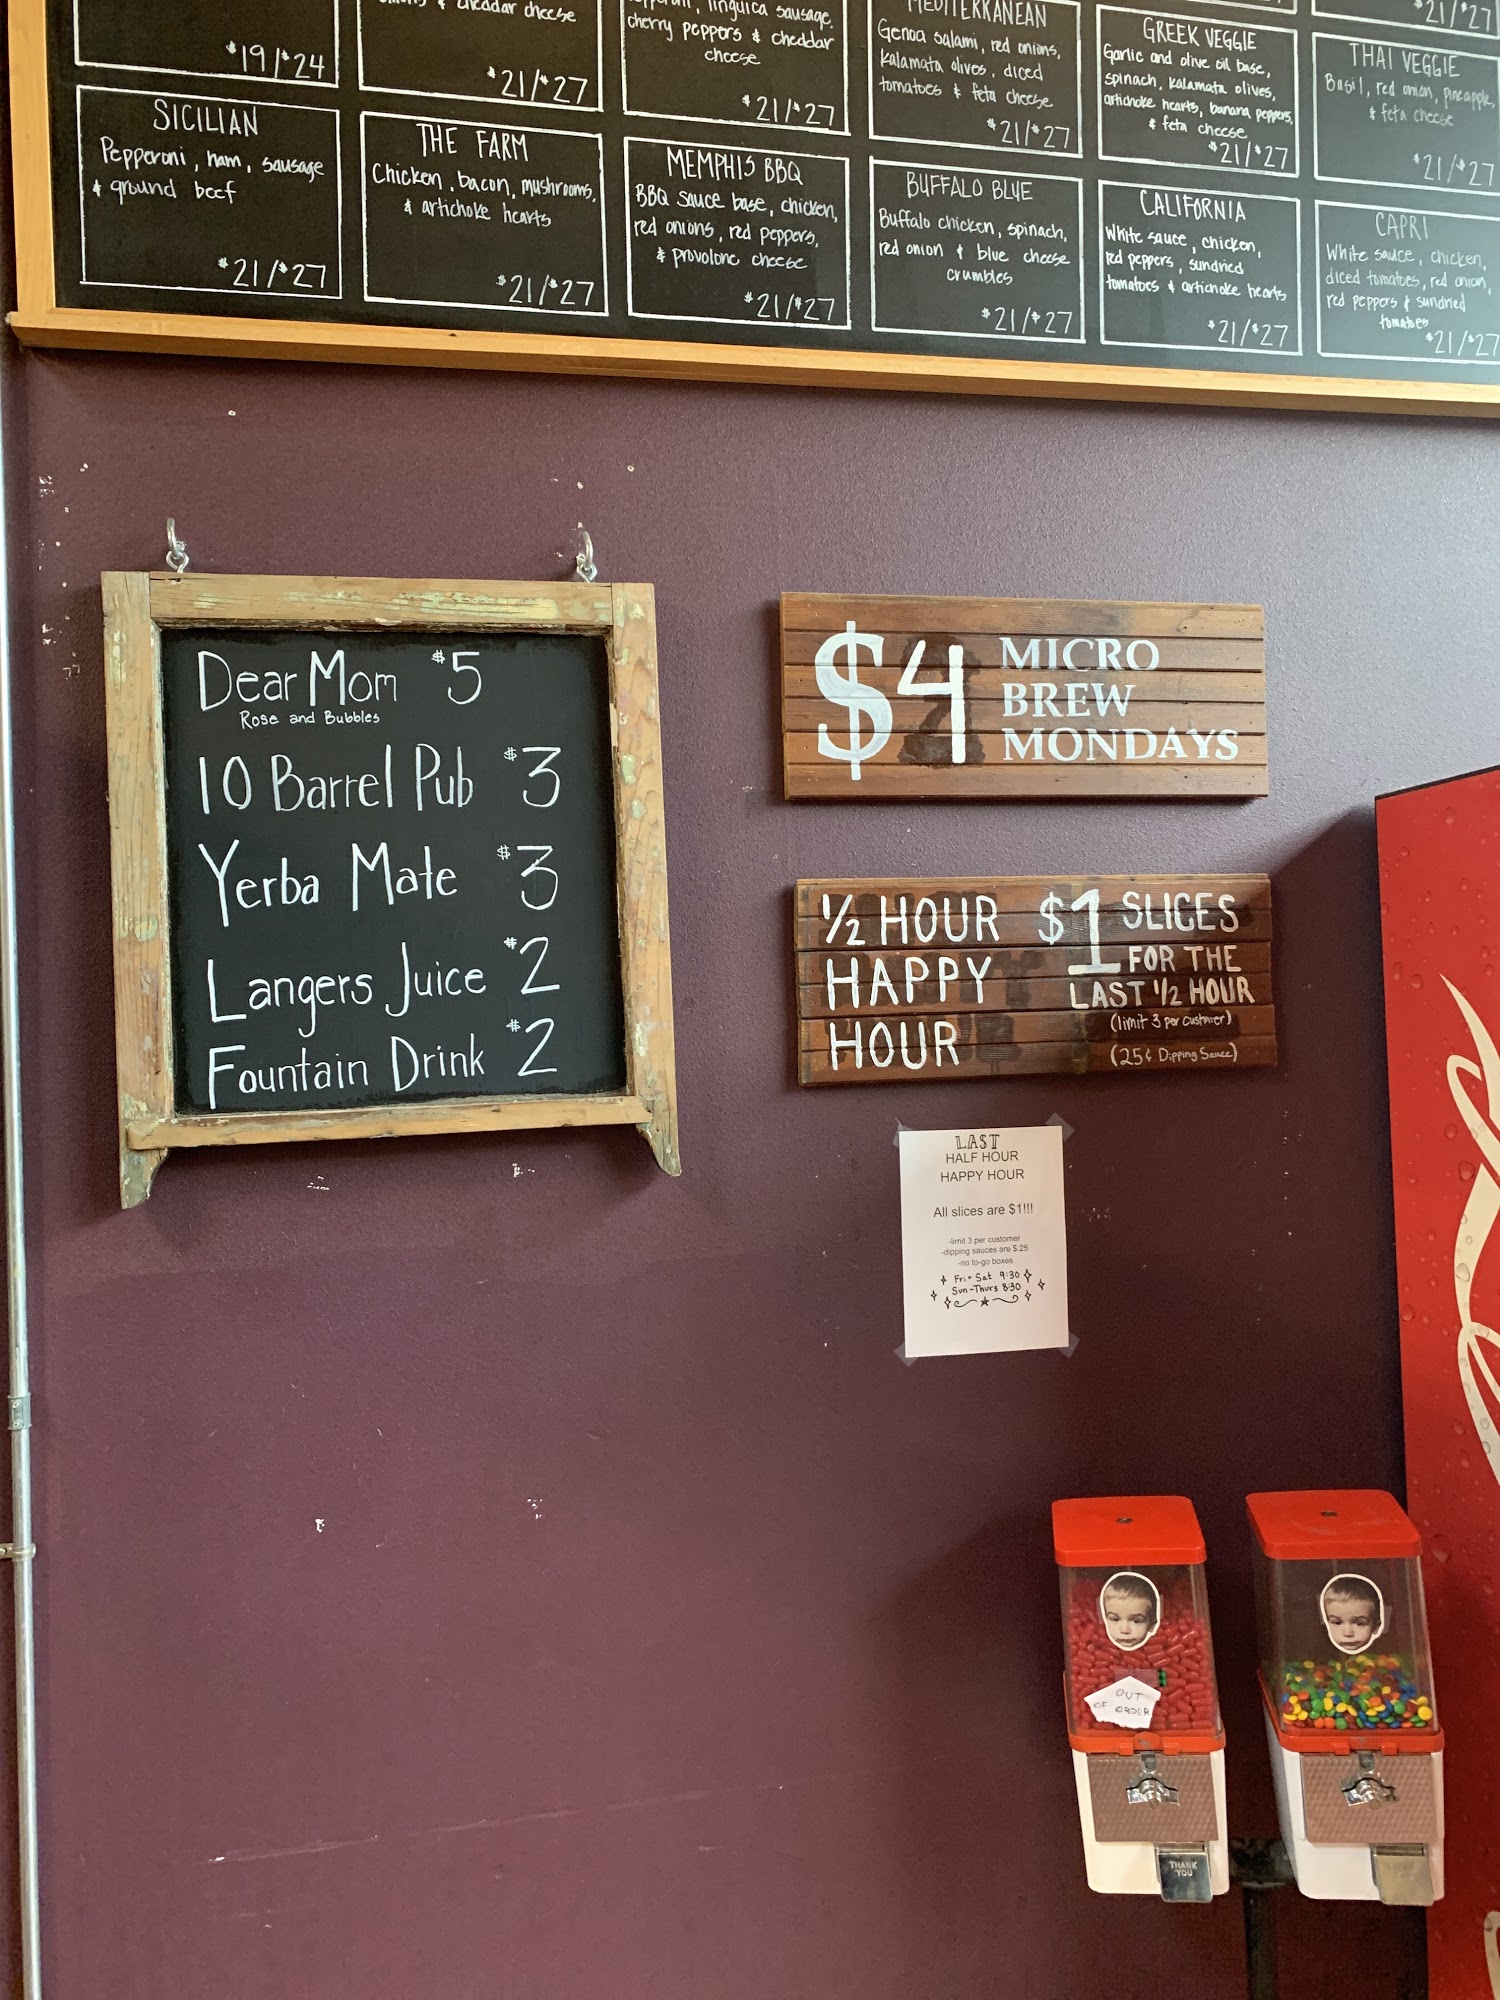 & cheddar cheese
$19/$24
$21/$27
linguica sausage,
cherry peppers & cheddar
cheese
$21/$27
MEDITERRANEAN
Genoa salami, red onions,
kalamata olives, diced
tomatoes & feta cheese
$21/$27
GREEK VEGGIE
Garlic and olive oil base,
spinach, kalamata olives,
artichoke hearts, banana peppers,
& feta cheese
$21/$27
$21/$27
THAI VEGGIE
Basil, red onion, pineapple,
& feta cheese
$21/$27
SICILIAN
Pepperoni, ham, sausage
& ground beef
$21/$27
THE FARM
Chicken, bacon, mushrooms,
& artichoke hearts
$21/$27
MEMPHIS BBQ
BBQ sauce base, chicken,
red onions, red peppers,
& provolone cheese
$21/$27
BUFFALO BLUE
Buffalo chicken, spinach,
red onion & blue cheese
crumbles
$21/$27
CALIFORNIA
White sauce, chicken,
red peppers, sundried
tomatoes & artichoke hearts
$21/$27
CAPRI
White sauce, chicken,
diced tomatoes, red onion,
red peppers & sundried
tomatoes
$21/$27
Dear Mom $5
Rose and Bubbles
10 Barrel Pub $3
Yerba Mate $3
Langers Juice $2
Fountain Drink $2
$4 MICRO
BREW
MONDAYS
1/2 HOUR
HAPPY
HOUR
$1 SLICES
FOR THE
LAST 1/2 HOUR
(limit 3 per customer)
(25¢ Dipping Sauce)
LAST
HALF HOUR
HAPPY HOUR
All slices are $1!!!
-limit 3 per customer
-dipping sauces are $.25
-no to-go boxes
Fri + Sat 9:30
Sun-Thurs 8:30
OUT
OF ORDER
THANK
YOU